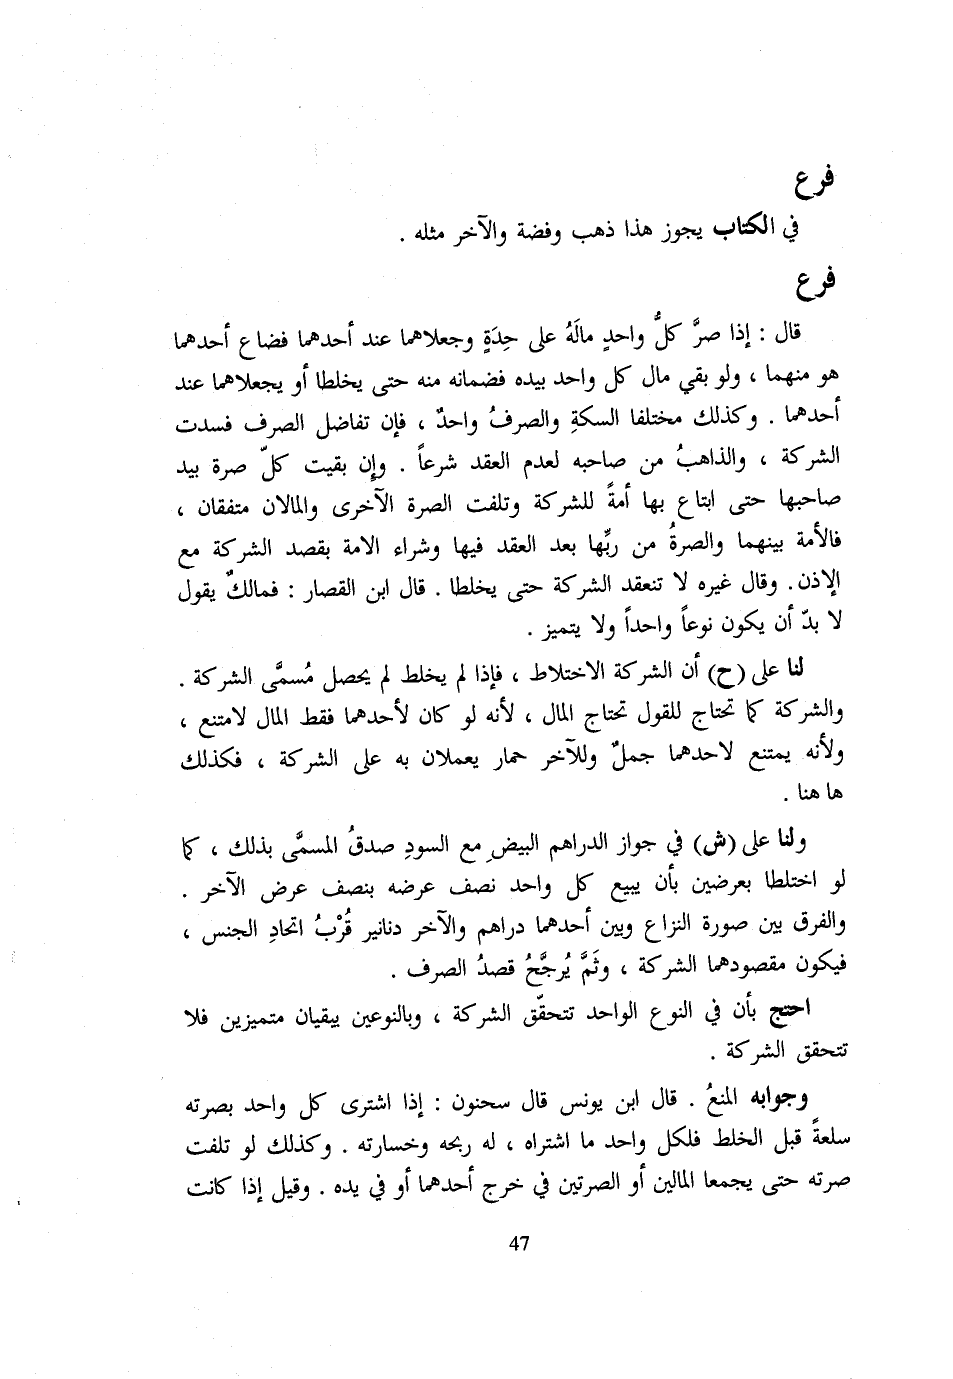 فرع
في الكتاب يجوز هذا ذهب وفضة والآخر مثله .
فرع
قال : إذا صرَّ كلُّ واحدٍ مالَهُ على حِدَةٍ وجعلاهما عند أحدهما فضاع أحدهما
هو منهما ، ولو بقي مال كل واحد بيده فضمانه منه حتى يخلطا أو يجعلاهما عند
أحدهما . وكذلك مختلفا السكةِ والصرفُ واحدٌ ، فإن تفاضل الصرف فسدت
الشركة ، والذاهبُ من صاحبه لعدم العقد شرعاً . وإن بقيت كلّ صرة بيد
صاحبها حتى ابتاع بها أمةً للشركة وتلفت الصرة الآخرى والمالان متفقان ،
فالأمة بينهما والصرةُ من ربِّها بعد العقد فيها وشراء الامة بقصد الشركة مع
الإذن. وقال غيره لا تنعقد الشركة حتى يخلطا . قال ابن القصار : فمالكٌ يقول
لا بدّ أن يكون نوعاً واحداً ولا يتميز .
لنا على (ح) أن الشركة الاختلاط ، فإذا لم يخلط لم يحصل مُسمَّى الشركة .
والشركة كما تحتاج للقول تحتاج المال ، لأنه لو كان لأحدهما فقط المال لامتنع ،
ولأنه يمتنع لاحدهما جملٌ وللآخر حمار يعملان به على الشركة ، فكذلك
ها هنا .
ولنا على (ش) في جواز الدراهم البيضِ مع السودِ صدقُ المسمَّى بذلك ، كما
لو اختلطا بعرضين بأن يبيع كل واحد نصف عرضه بنصف عرض الآخر .
والفرق بين صورة النزاع وبين أحدهما دراهم والآخر دنانير قُرْبُ اتحادِ الجنس ،
فيكون مقصودهما الشركة ، وثَمَّ يُرجَّحُ قصدُ الصرف .
احتج بأن في النوع الواحد تتحقّق الشركة ، وبالنوعين يبقيان متميزين فلا
تتحقق الشركة .
وجوابه المنعُ . قال ابن يونس قال سحنون : إذا اشترى كل واحد بصرته
سلعةً قبل الخلط فلكل واحد ما اشتراه ، له ربحه وخسارته . وكذلك لو تلفت
صرته حتى يجمعا المالين أو الصرتين في خرج أحدهما أو في يده . وقيل إذا كانت
47